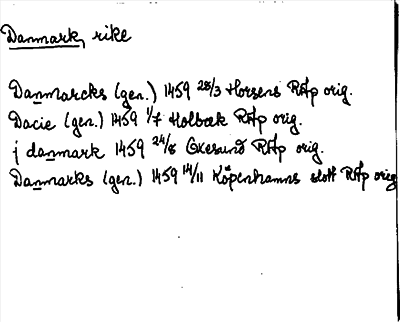 Danmark, rike
Danmarcks (gen.) 1459 28/3 Horsens RAp orig.
Dacie (gen.) 1459 1/7 Holbæk RAp orig.
j danmark 1459 24/8 Öresund RAp orig.
Danmarks (gen.) 1459 14/11 Köpenhamns slott RAp orig